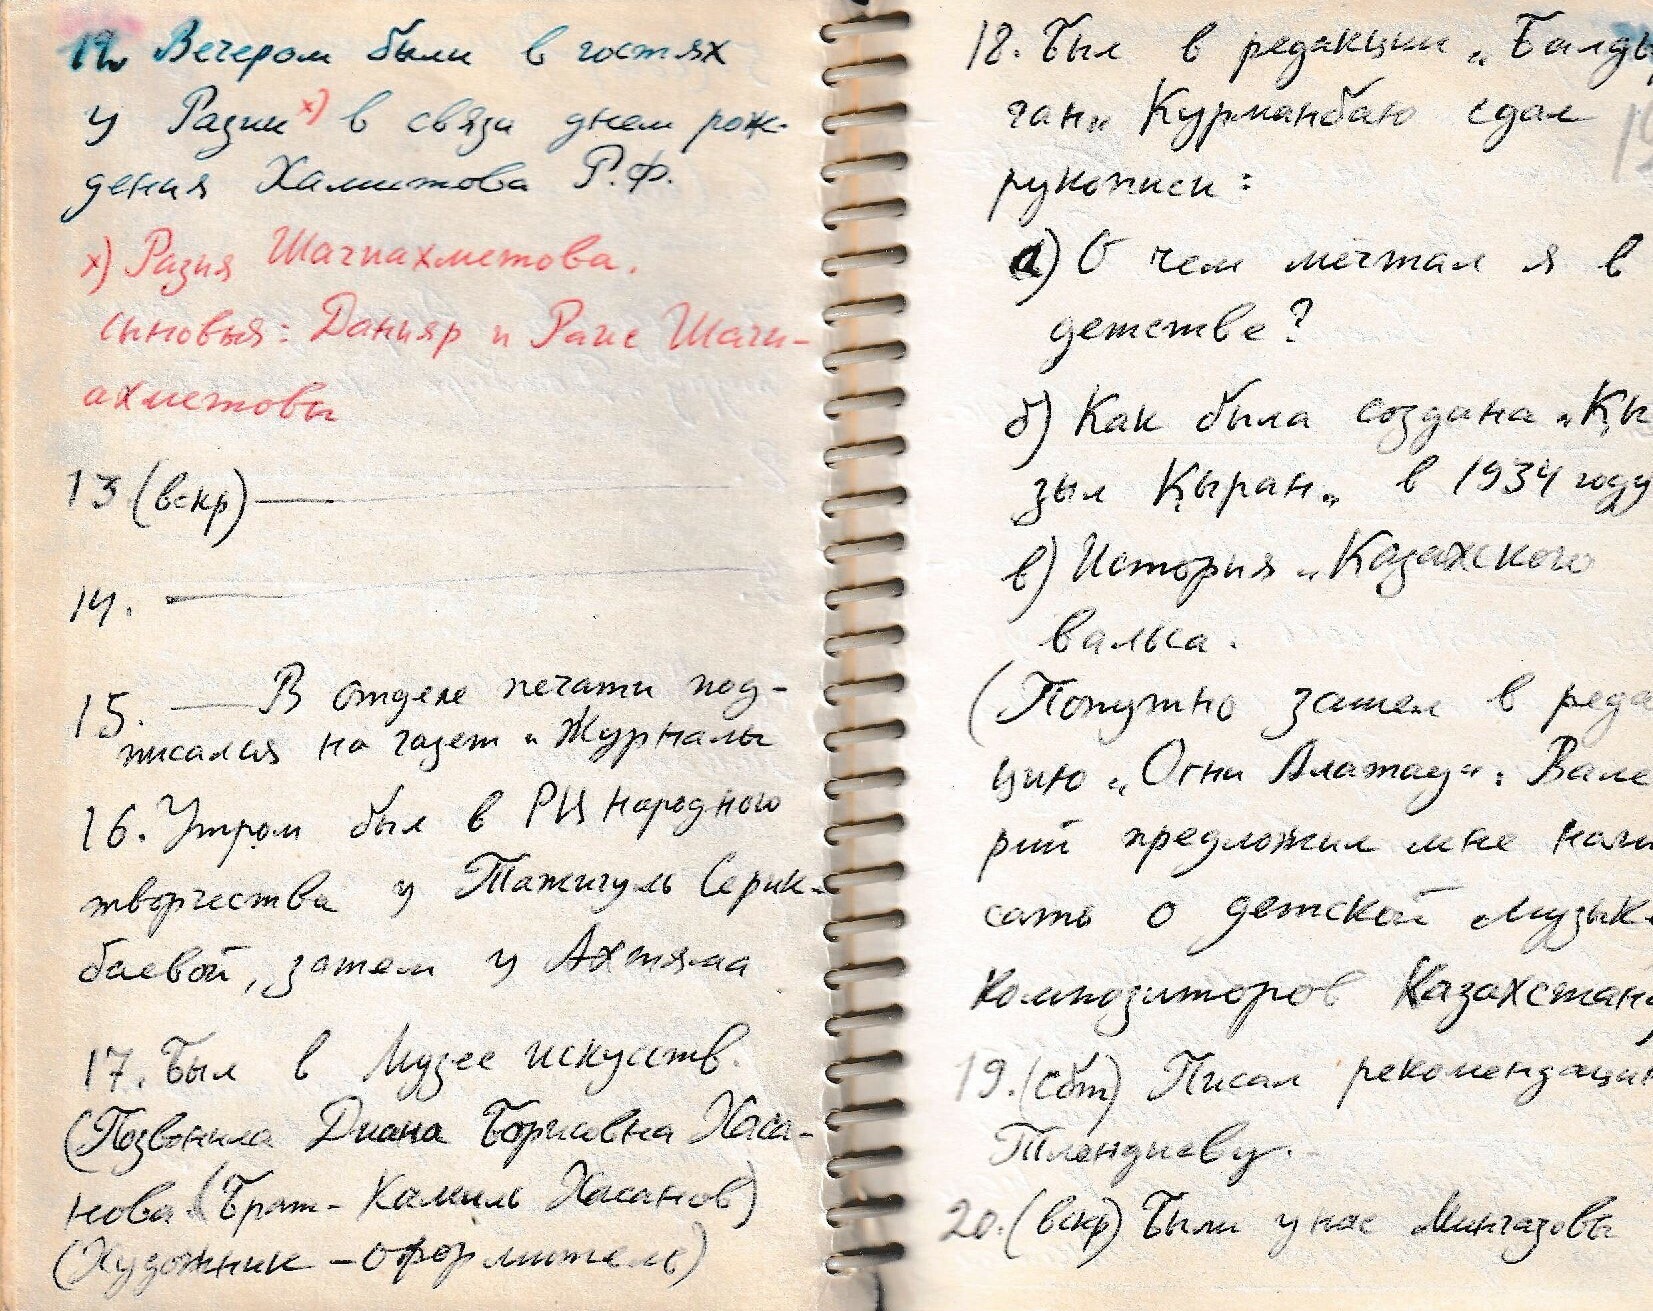 12. Вечером были в гостях
у Разии х) в связи днем рож-
дения Хамитова Р.Ф.
х) Разия Шагиахметова.
сыновья: Данияр и Раис Шаги-
ахметовы
13 (вскр) —
14. —
15. — В отделе печати под-
писался на газет и журналы
16. Утром был в РЦ народного
творчества у Тажигуль Серик-
баевой, затем у Ахтяма
17. Был в Музее искусств.
(Позвонила Диана Борисовна Хаса-
нова (Брат - Камиль Хасанов)
(Художник - оформитель)
18. Был в редакции „Балды
ган„ Курманбаю сдал
рукописи:
а) О чем мечтал я в
детстве?
б) Как была создана „Қы
зыл Қыран„ в 1934 году
в) История „Казахского
вальса.
(Попутно зашел в реда
цию „Огни Алатау“: Вале
рий предложил мне напи
сать о детской музык
композиторов Казахстан
19. (сбт) Писал рекомендаци
Тлендиеву.
20. (вскр) Были у нас Мингазовы